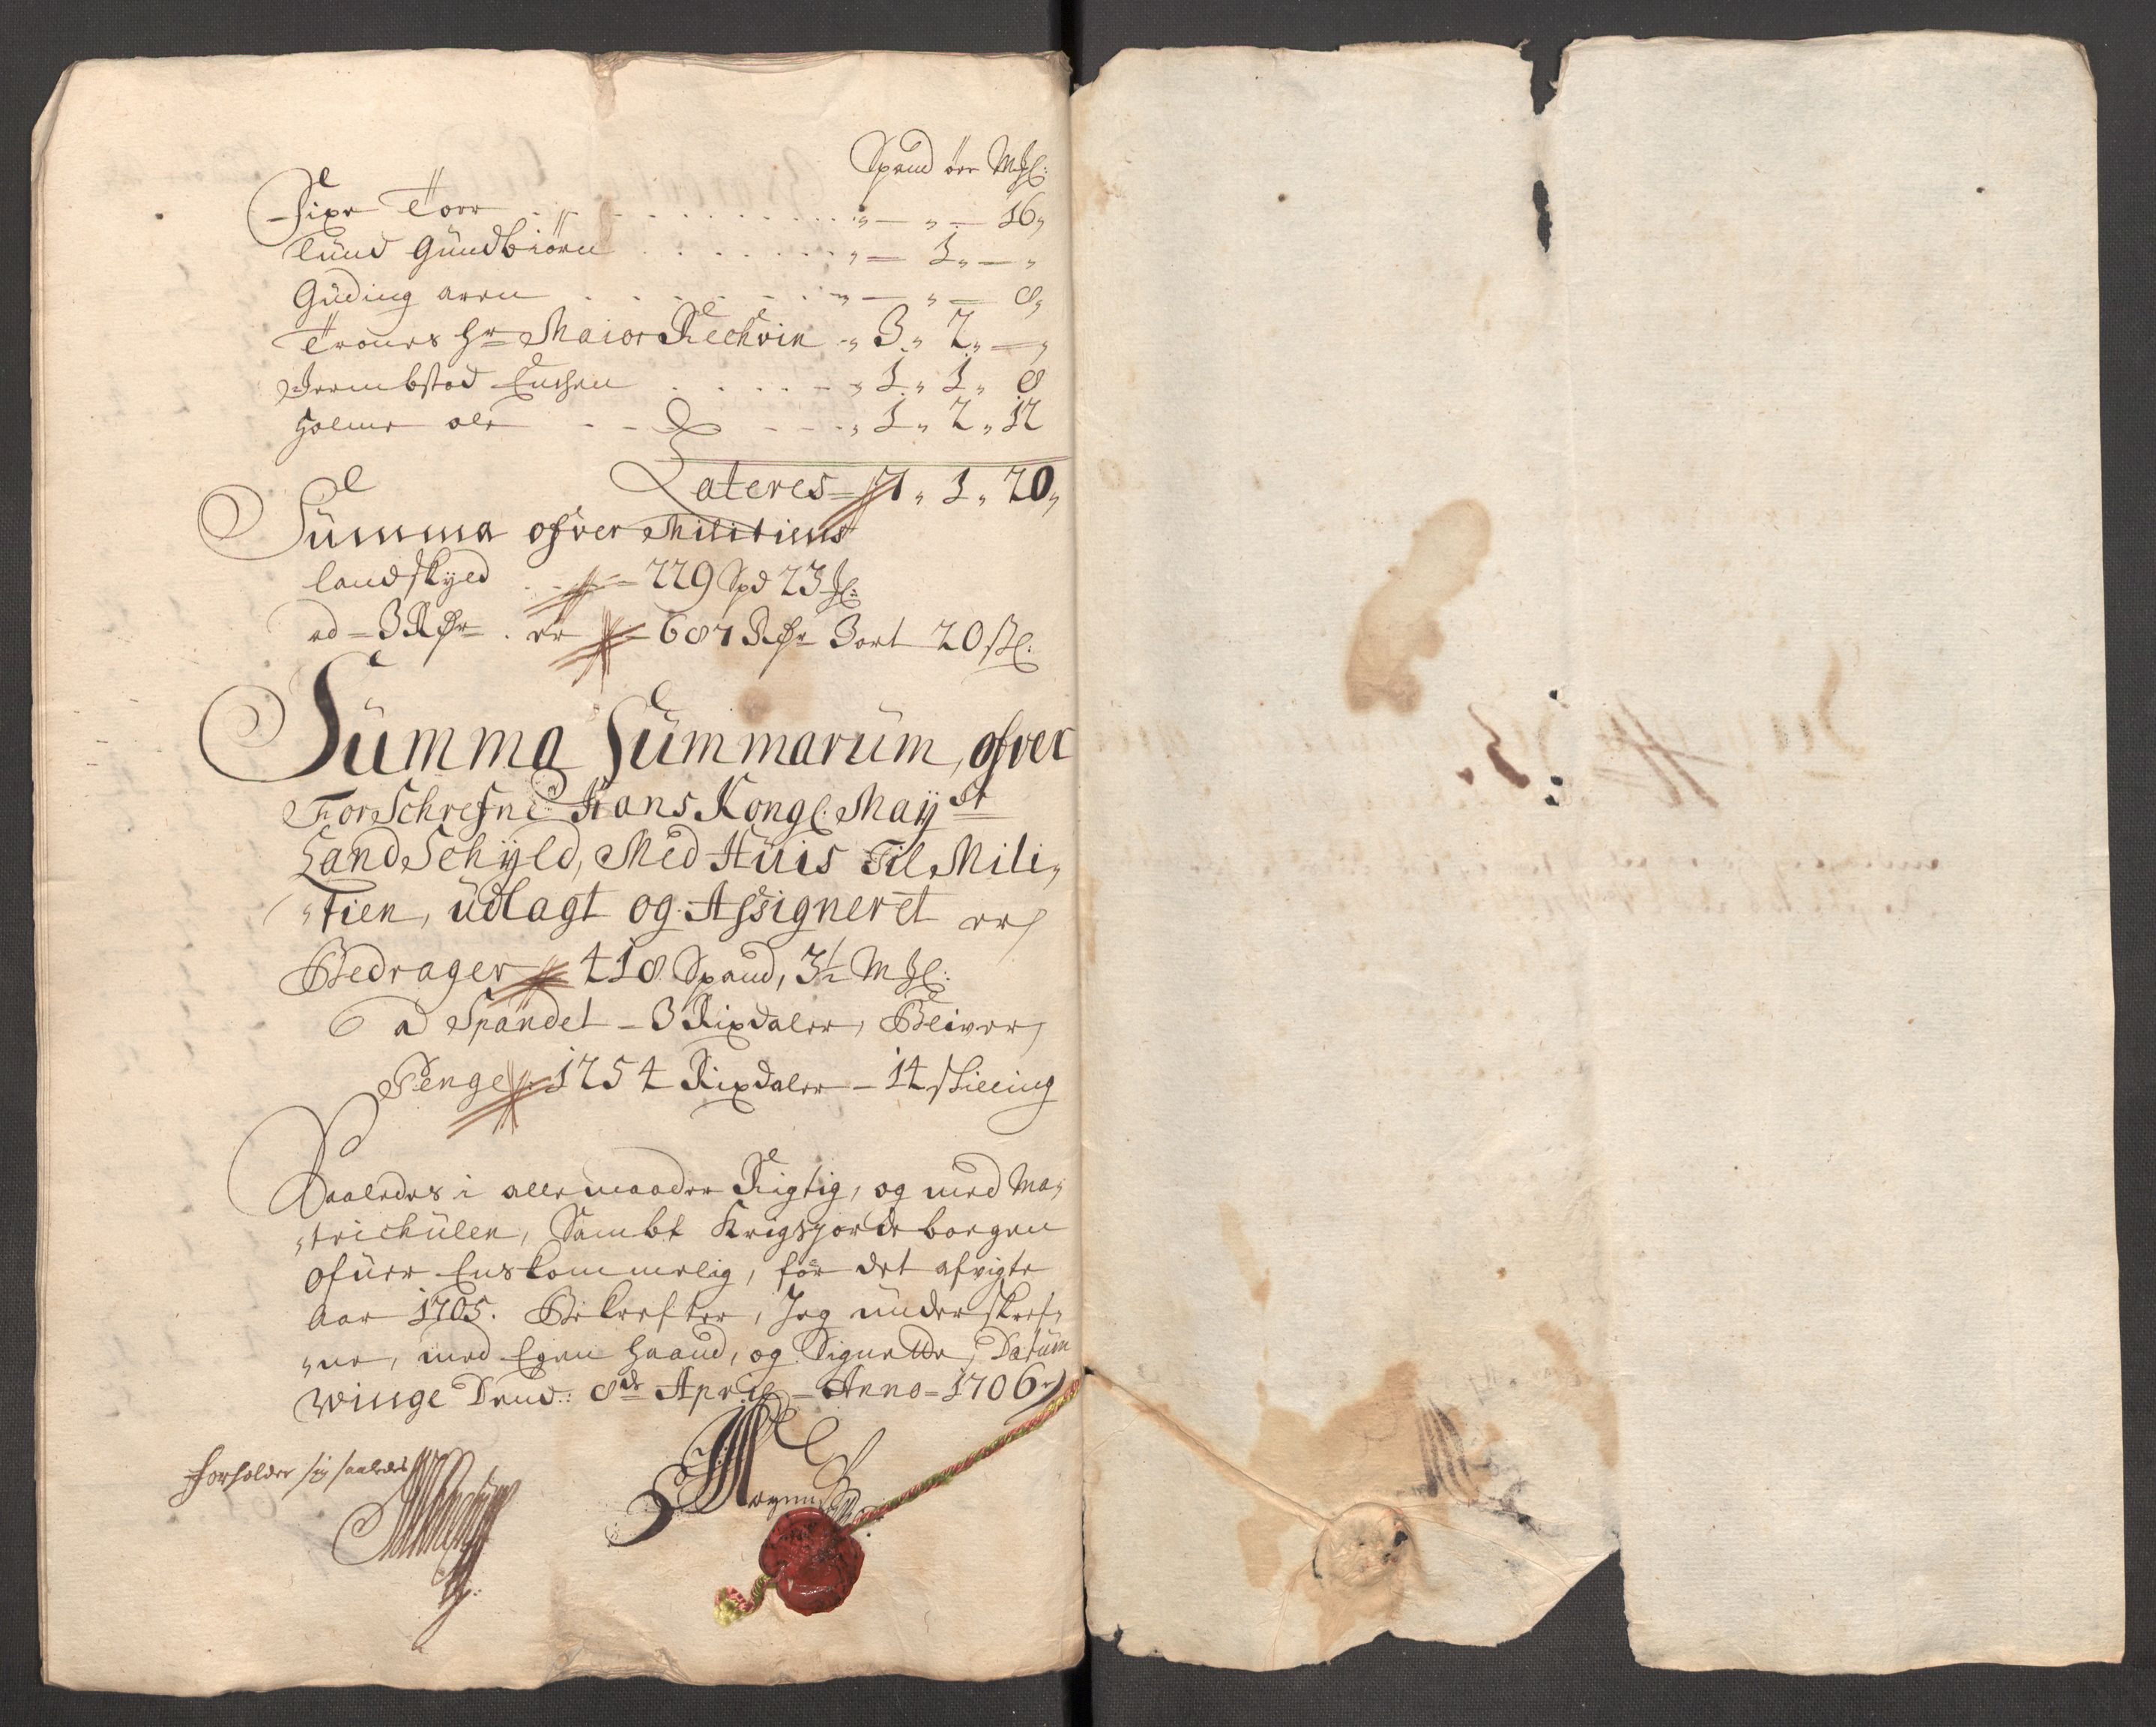 Spand øre Mȝl:
Sixe Tore . . . . . . . . „ — „ — 16„
Lund Gundbiørn . . . . . . „ — 1„ — „
Guding aren . . . . . . „ — „ — 8„
Trones Hr Maior Kechvin - „ 3„ 2„ — „
Jermbstad Ensken . . . . - „ 1„ 1„ 8
Holme ole - - - - „ 1„ 2„ 12
Lateres — 71„ 1„ 20„
Summa ofver Militiens
landskyld . - 229 Spd 23 ȝl:
ad - 3 Rdr . er - 687 Rdr 3 ort 20 sl:
Summa Summarum, ofver
ForSchrefne Hans Kongl: Maÿst
LandSchÿld, Med Huis Til Mili„
„tien, udlagt og Assigneret er,
Bedrager 418 Spand, 3½ Mȝl:
a Spandet - 3 Rixdaler, Bliver,
Penge 1254 Rixdaler - 14 skilling
Saaledes i alle maader Rigtig, og med Ma„
„trichulen, Sambt Krigsjordeboegen
ofuer Enskommelig, for det afvigte
Aar 1705. Bekrefter, Jeg underskref„
„ne, med Egen Haand, og Signette, Datum
Winge Dend: 8de April - Anno - 1706
forholder sig saaledes